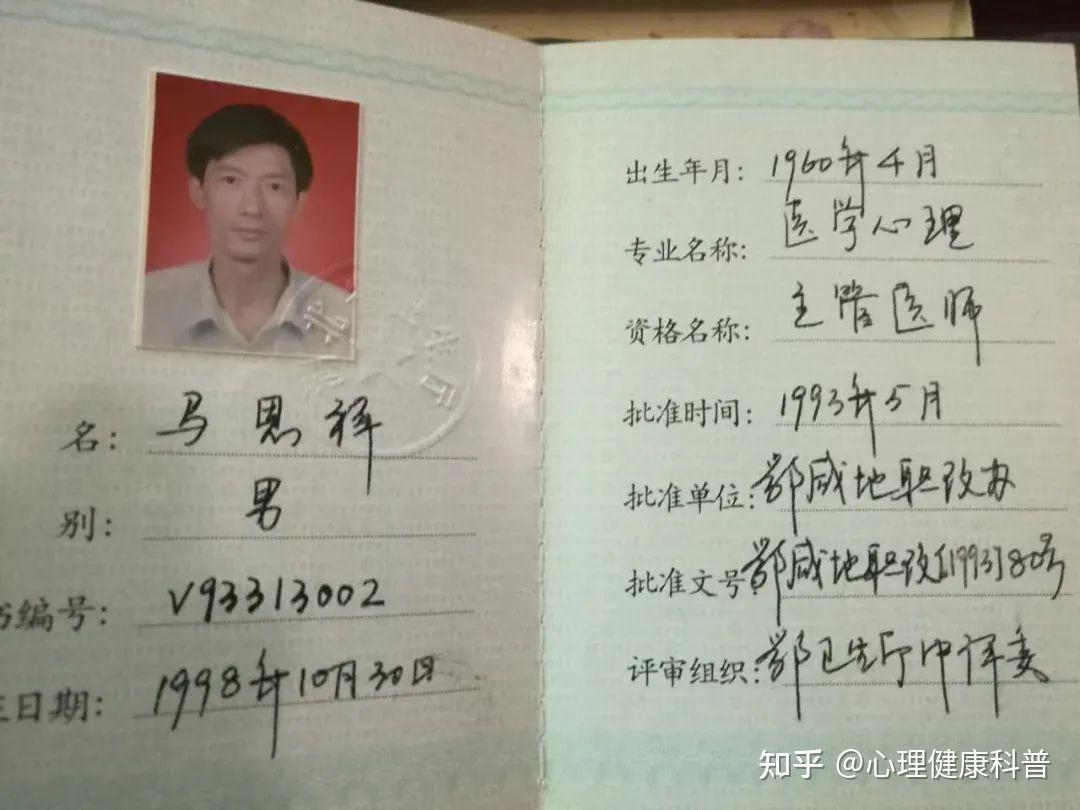 名：马恩祥
别：男
书编号：V93313002
日期：1998年10月30日
出生年月：1960年4月
专业名称：医学心理
资格名称：主管医师
批准时间：1993年5月
批准单位：鄂咸地职改办
批准文号：鄂咸地职改[1993]80号
评审组织：鄂卫生厅中评委
知乎 @心理健康科普